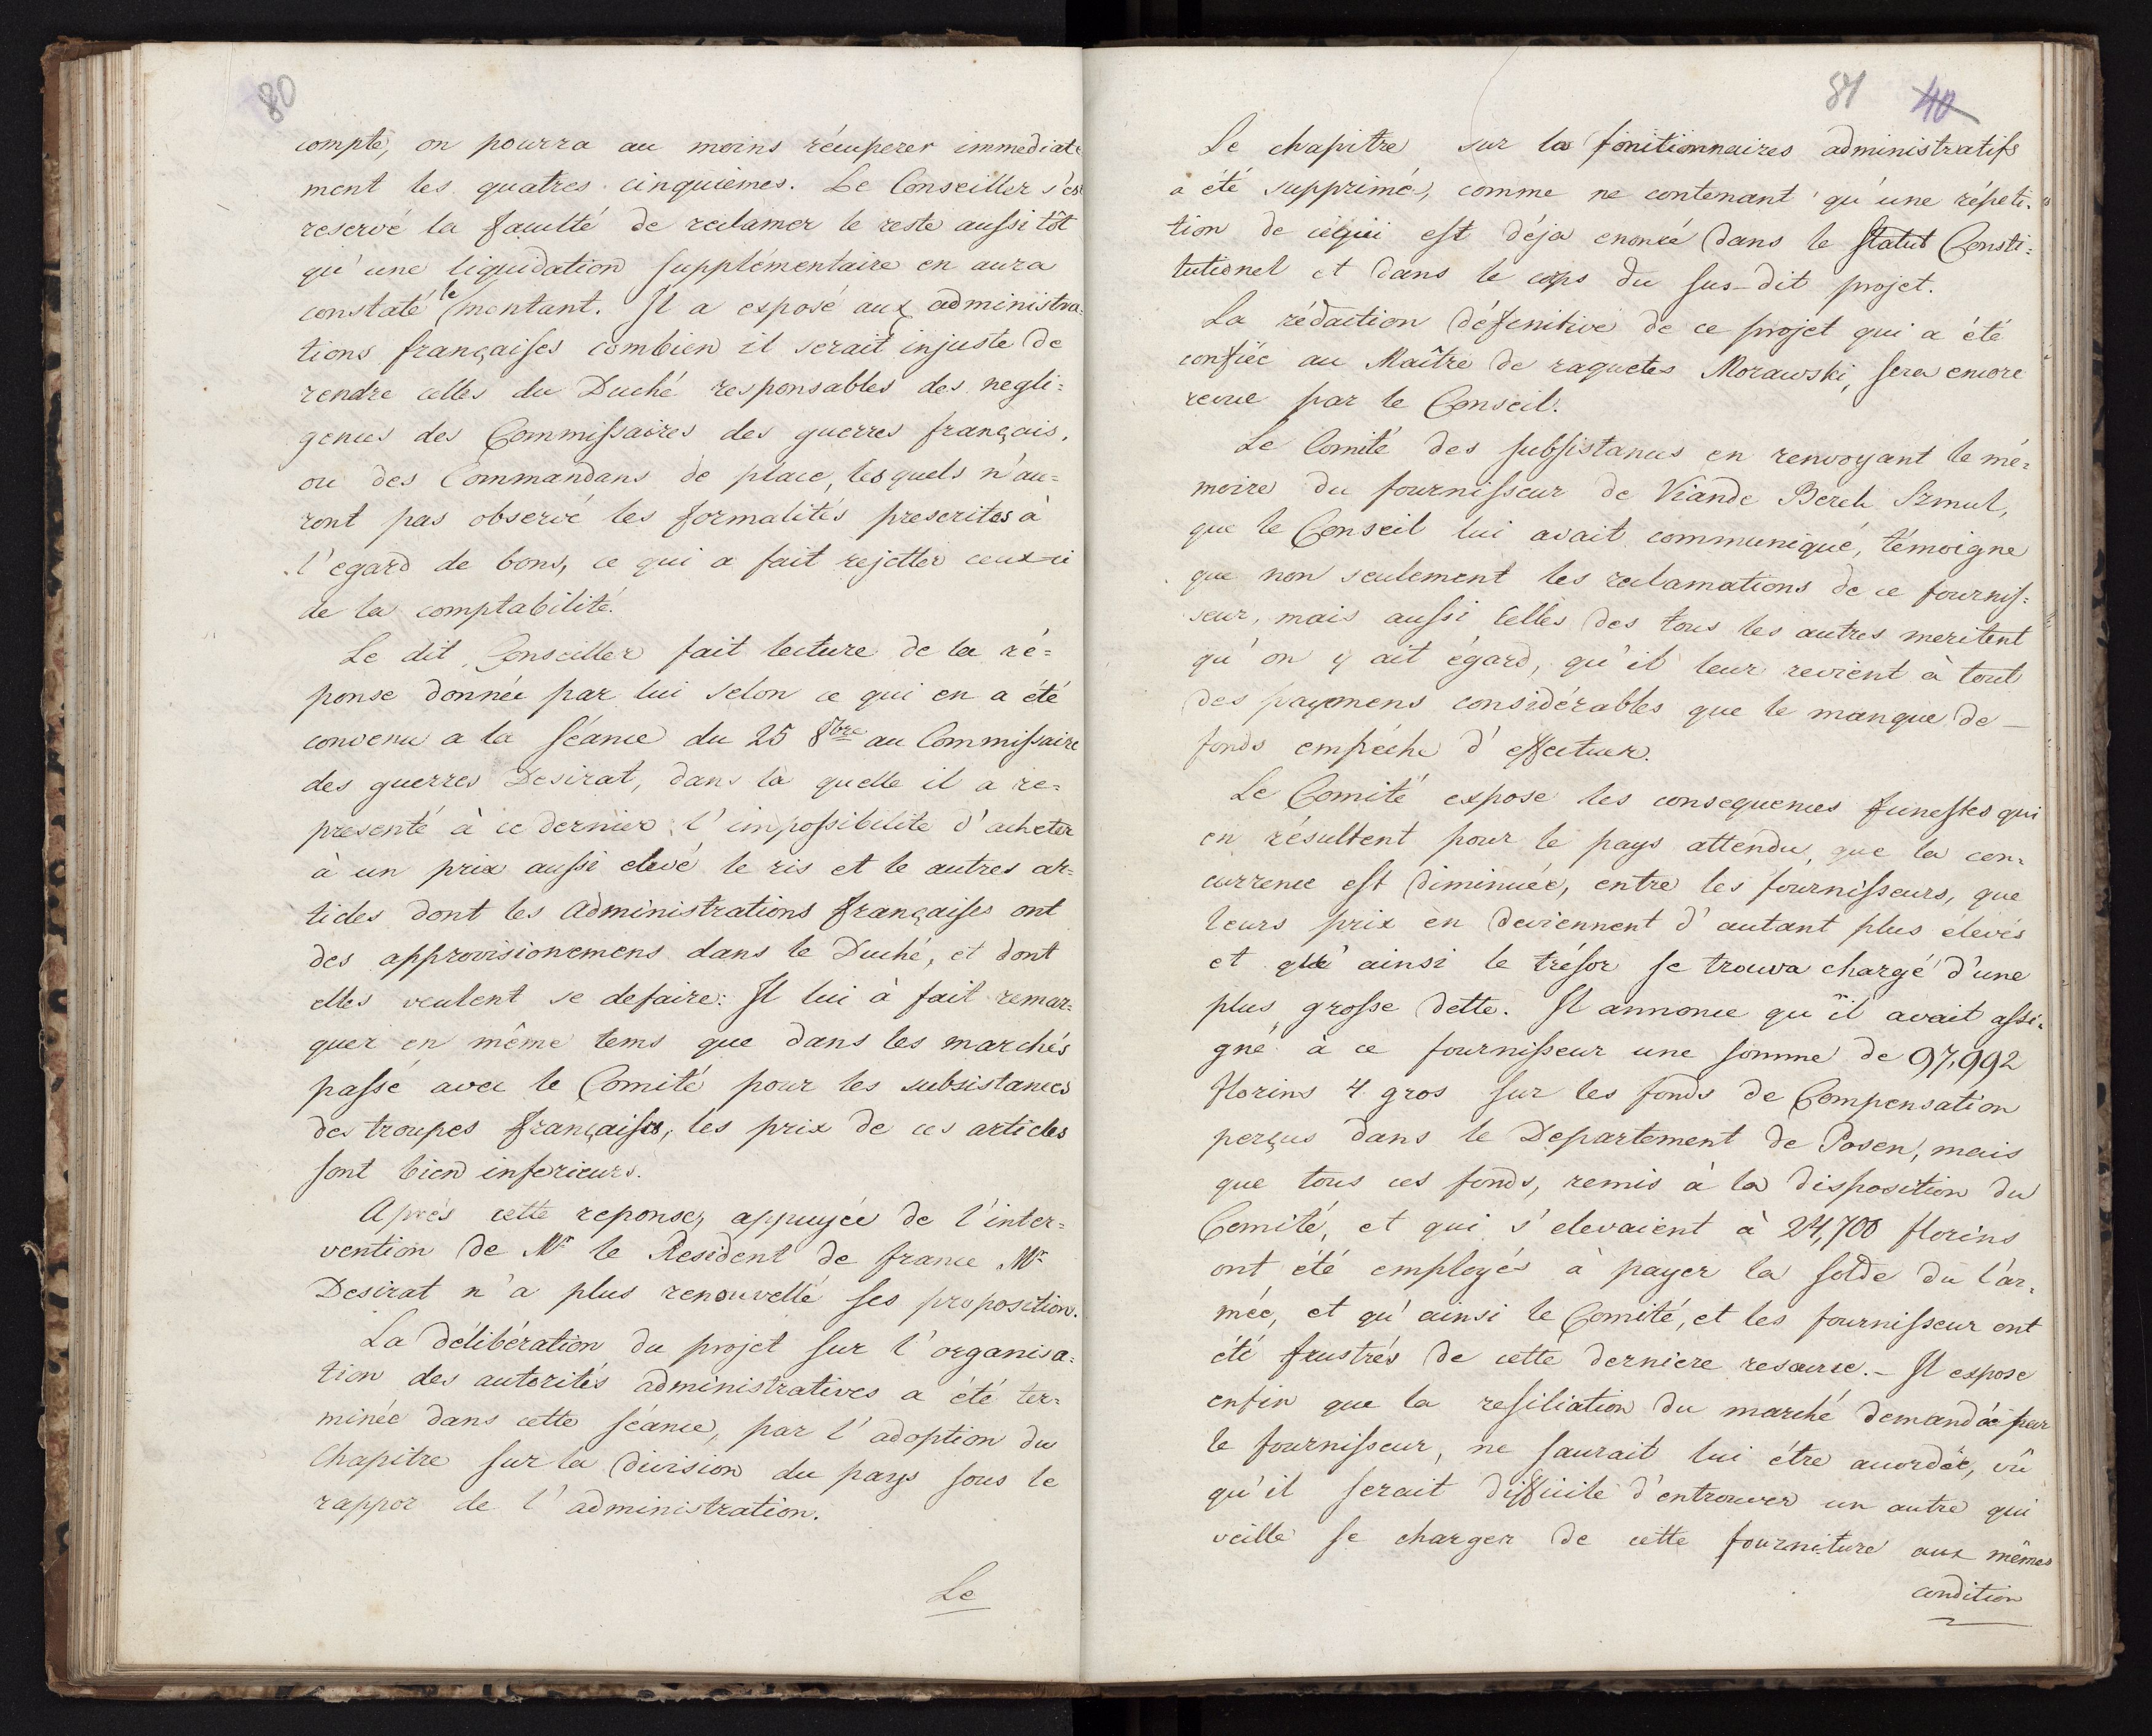 80
compte, on pourra au moins récuperer immediate
ment les quatres cinquiemes. Le Conseiller s'est
reservé la faculté de reclamer le reste aussi tôt
qu'une liquidation supplémentaire en aura
constaté le montant. Il a exposé aux administra-
tions françaises combien il serait injuste de
rendre celles du Duché responsables des negli=
gences des Commissaires des guerres français,
ou des Commandans de place, les quels n'au=
ront pas observé les formalités prescrites à
l'egard de bons, ce qui a fait rejetter ceux-ci
de la comptabilité.
Le dit Conseiller fait lecture de la ré=
ponse donnée par lui selon ce qui en a été
convenu a la séance du 25 8bre au Commissaire
des guerres Desirat, dans la quelle il a re=
presenté à ce dernier l'impossibilite d'acheter
à un prix aussi elevé le ris et le autres ar=
ticles dont les administrations françaises ont
des approvisionemens dans le Duché, et dont
elles veulent se defaire: Il lui à fait remar=
quer en même tems que dans les marchés
passé avec le Comité pour les subsistances
des troupes françaises, les prix de ces articles
sont bien inferieurs.
Aprés cette reponse, appuyée de l'inter=
vention de Mr le Resident de france Mr
Desirat n'a plus renouvellé ses proposition.
La délibération du projet sur l'organisa=
tion des autorités administratives a été ter=
minée dans cette séance, par l'adoption du
Chapitre sur la division du pays sous le
rappor de l'administration.
Le
81 40
Le chapitre sur les fonitionnaires administratifs
a été supprimé, comme ne contenant qu'une répeti-
tion de ce qui est déja enoncé dans le statut Consti=
tutionel et dans le corps du sus-dit projet.
La rédaction défenitive de ce projet qui a été
confiée au Maître de raquetes Morawski, sera encore
revue par le Conseil.
Le Comité des subsistances en renvoyant le mé=
moire du fournisseur de Viande Berek Szmul,
que le Conseil lui avait communiqué, témoigne
que non seulement les reclamations de ce fournis=
seur, mais aussi Celles des tous les autres meritent
qu'on y ait égard, qu'il leur revient à tout
des payemens considérables que le manque de
fonds empéche d'effectuer.
Le Comité expose les consequences funestes qui
en résultent pour le pays attendu, que la con=
currence est diminuée, entre les fournisseurs, que
leurs prix en deviennent d'autant plus élevés
et que ainsi le trésor se trouva chargé d'une
plus grosse dette. Il annonce qu'il avait assi=
gné à ce fournisseur une somme de 97,992
florins 4 gros sur les fonds de Compensation
perçus dans le Departement de Posen, mais
que tous ces fonds, remis à la disposition du
Comité, et qui s'elevaient à 24,700 florins
ont été employés à payer la solde du l'ar=
mée, et qu'ainsi le Comité, et les fournisseur ont
été frustrés de cette derniere resource. - Il expose
enfin que la resiliation du marché demandée par
le fournisseur, ne saurait lui étre accordée, vû
qu'il serait difficile d'entrouver un autre qui
veille se charger de cette fourniture aux mêmes
condition